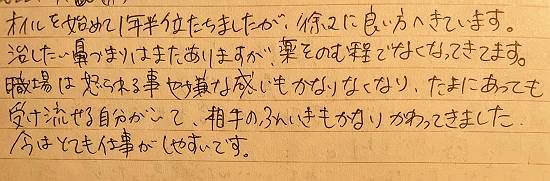 オイルを始めて1年半位たちましたが、徐々に良い方へきています。
治したい鼻づまりはまだありますが、薬をのむ程でなくなってきてます。
職場は怒られる事や嫌な感じもかなりなくなり、たまにあっても
受け流せる自分がいて、相手のふんいきもかなりかわってきました。
今はとても仕事がしやすいです。